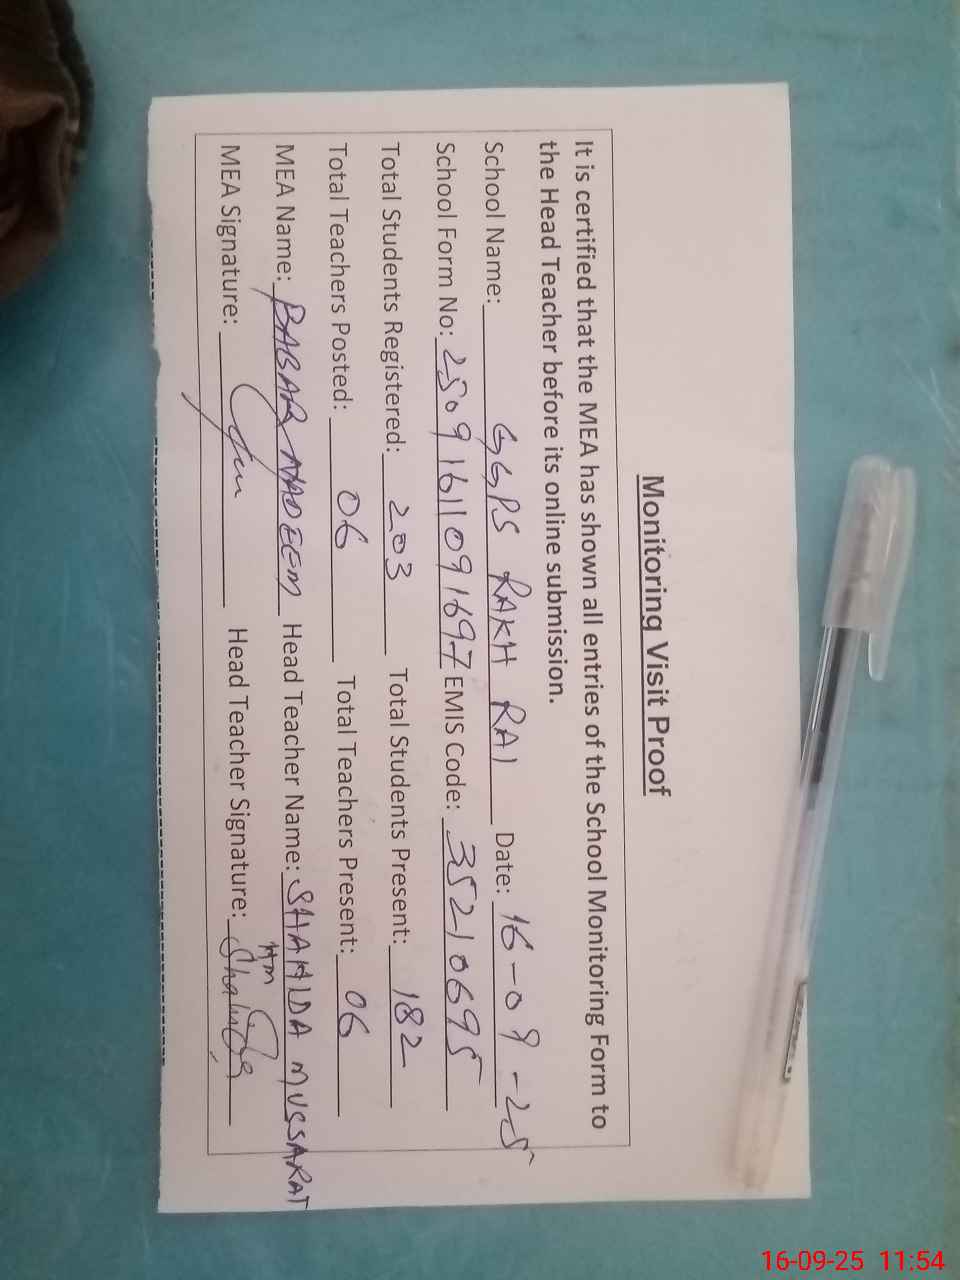 Monitoring Visit Proof
It is certified that the MEA has shown all entries of the School Monitoring Form to
the Head Teacher before its online submission.
School Name: GGPS RAKH RAI Date: 16-09-25
School Form No: 25091611091697 EMIS Code: 35210695
Total Students Registered: 203 Total Students Present: 182
Total Teachers Posted: 06 Total Teachers Present: 06
MEA Name: BABAR NADEEM Head Teacher Name: SHAHIDA MUSSARAT
MEA Signature: Head Teacher Signature: Shahida
16-09-25 11:54